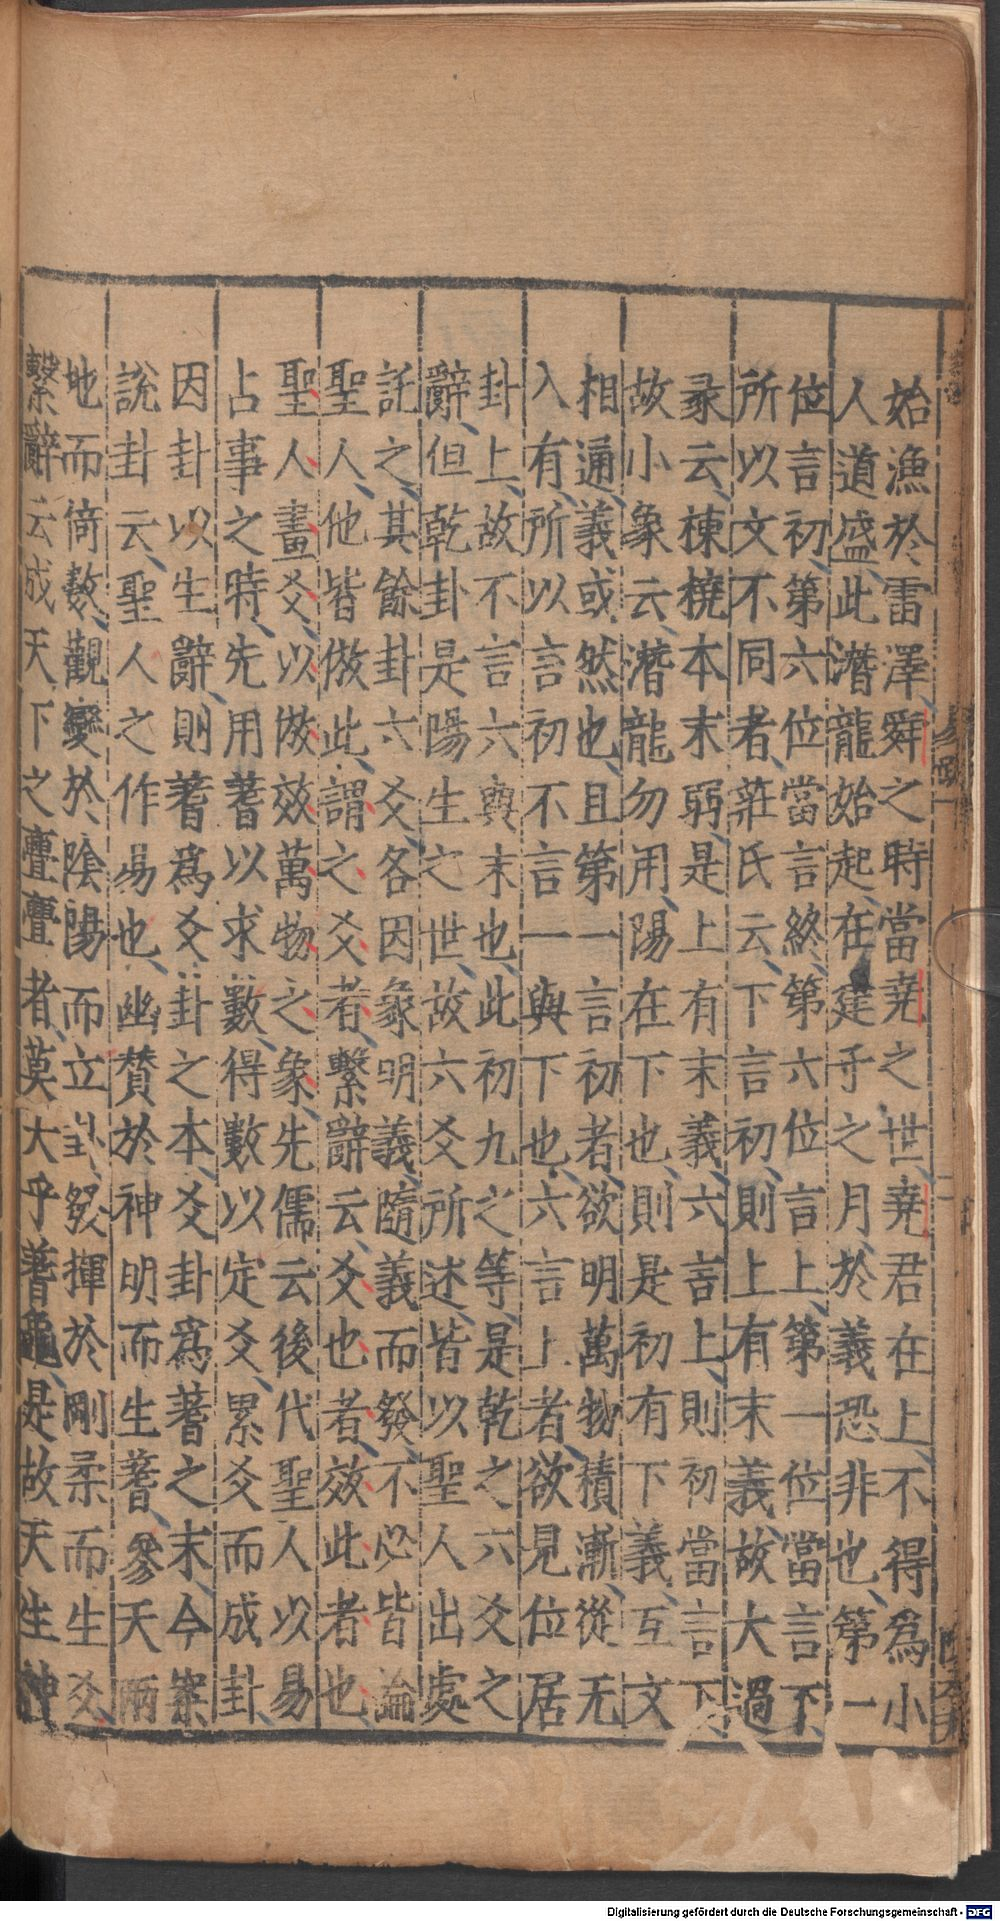 始漁於雷澤舜之時當堯之世堯君在上不得爲小
人道盛此潛龍始起在建子之月於義恐非也第一
位言初第六位當言終第六位言上第一位當言下
所以文不同者莊氏云下言初則上有末義故大過
彖云棟橈本末弱是上有末義六言上則初當言下
故小象云潛龍勿用陽在下也則是初有下義互文
相通義或然也且第一言初者欲明萬物積漸從无
入有所以言初不言一與下也六言上者欲見位居
卦上故不言六與末也此初九之等是乾之六爻之
辭但乾卦是陽生之世故六爻所述皆以聖人出處
託之其餘卦六爻各因彖明義隨義而發不必皆論
聖人他皆倣此謂之爻者繫辭云爻也者效此者也
聖人畫爻以倣效萬物之象先儒云後代聖人以易
占事之時先用蓍以求數得數以定爻累爻而成卦
因卦以生辭則蓍爲爻卦之本爻卦爲蓍之末今案
說卦云聖人之作易也幽贊於神明而生蓍參天兩
地而倚數觀變於陰陽而立卦發揮於剛柔而生爻
繫辭云成天下之亹亹者莫大乎蓍龜是故天生神
Digitalisierung gefördert durch die Deutsche Forschungsgemeinschaft - DFG